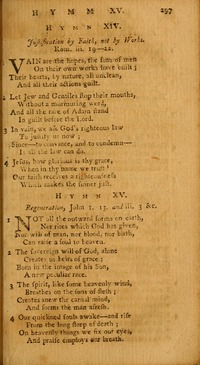 HYMN XV. 297
HYMN XIV.
Justification by Faith, not by Works.
Rom. iii. 19—22.
VAIN are the hopes, the sons of men
On their own works have built;
Their hearts, by nature, all unclean,
And all their actions guilt.
2 Let Jew and Gentiles stop their mouths,
Without a murmuring word,
And all the race of Adam stand
In guilt before the Lord.
3 In vain, we ask God's righteous law
To justify us now;
Since—to convince, and to condemn—
Is all the law can do.
4 Jesus, how glorious is thy grace,
When in thy name we trust!
Our faith receives a righteousness
Which makes the sinner just.
HYMN XV.
Regeneration, John i. 13. and iii. 3 &c.
1 NOT all the outward forms on earth,
Nor rites which God has given,
Nor will of man, nor blood, nor birth,
Can raise a soul to heaven.
2 The sovereign will of God, alone
Creates us heirs of grace;
Born in the image of his Son,
A new peculiar race.
3 The spirit, like some heavenly wind,
Breathes on the sons of flesh;
Creates anew the carnal mind,
And forms the man afresh.
4 Our quickened souls awake—and rise
From the long sleep of death;
On heavenly things we fix our eyes,
And praise employs our breath.